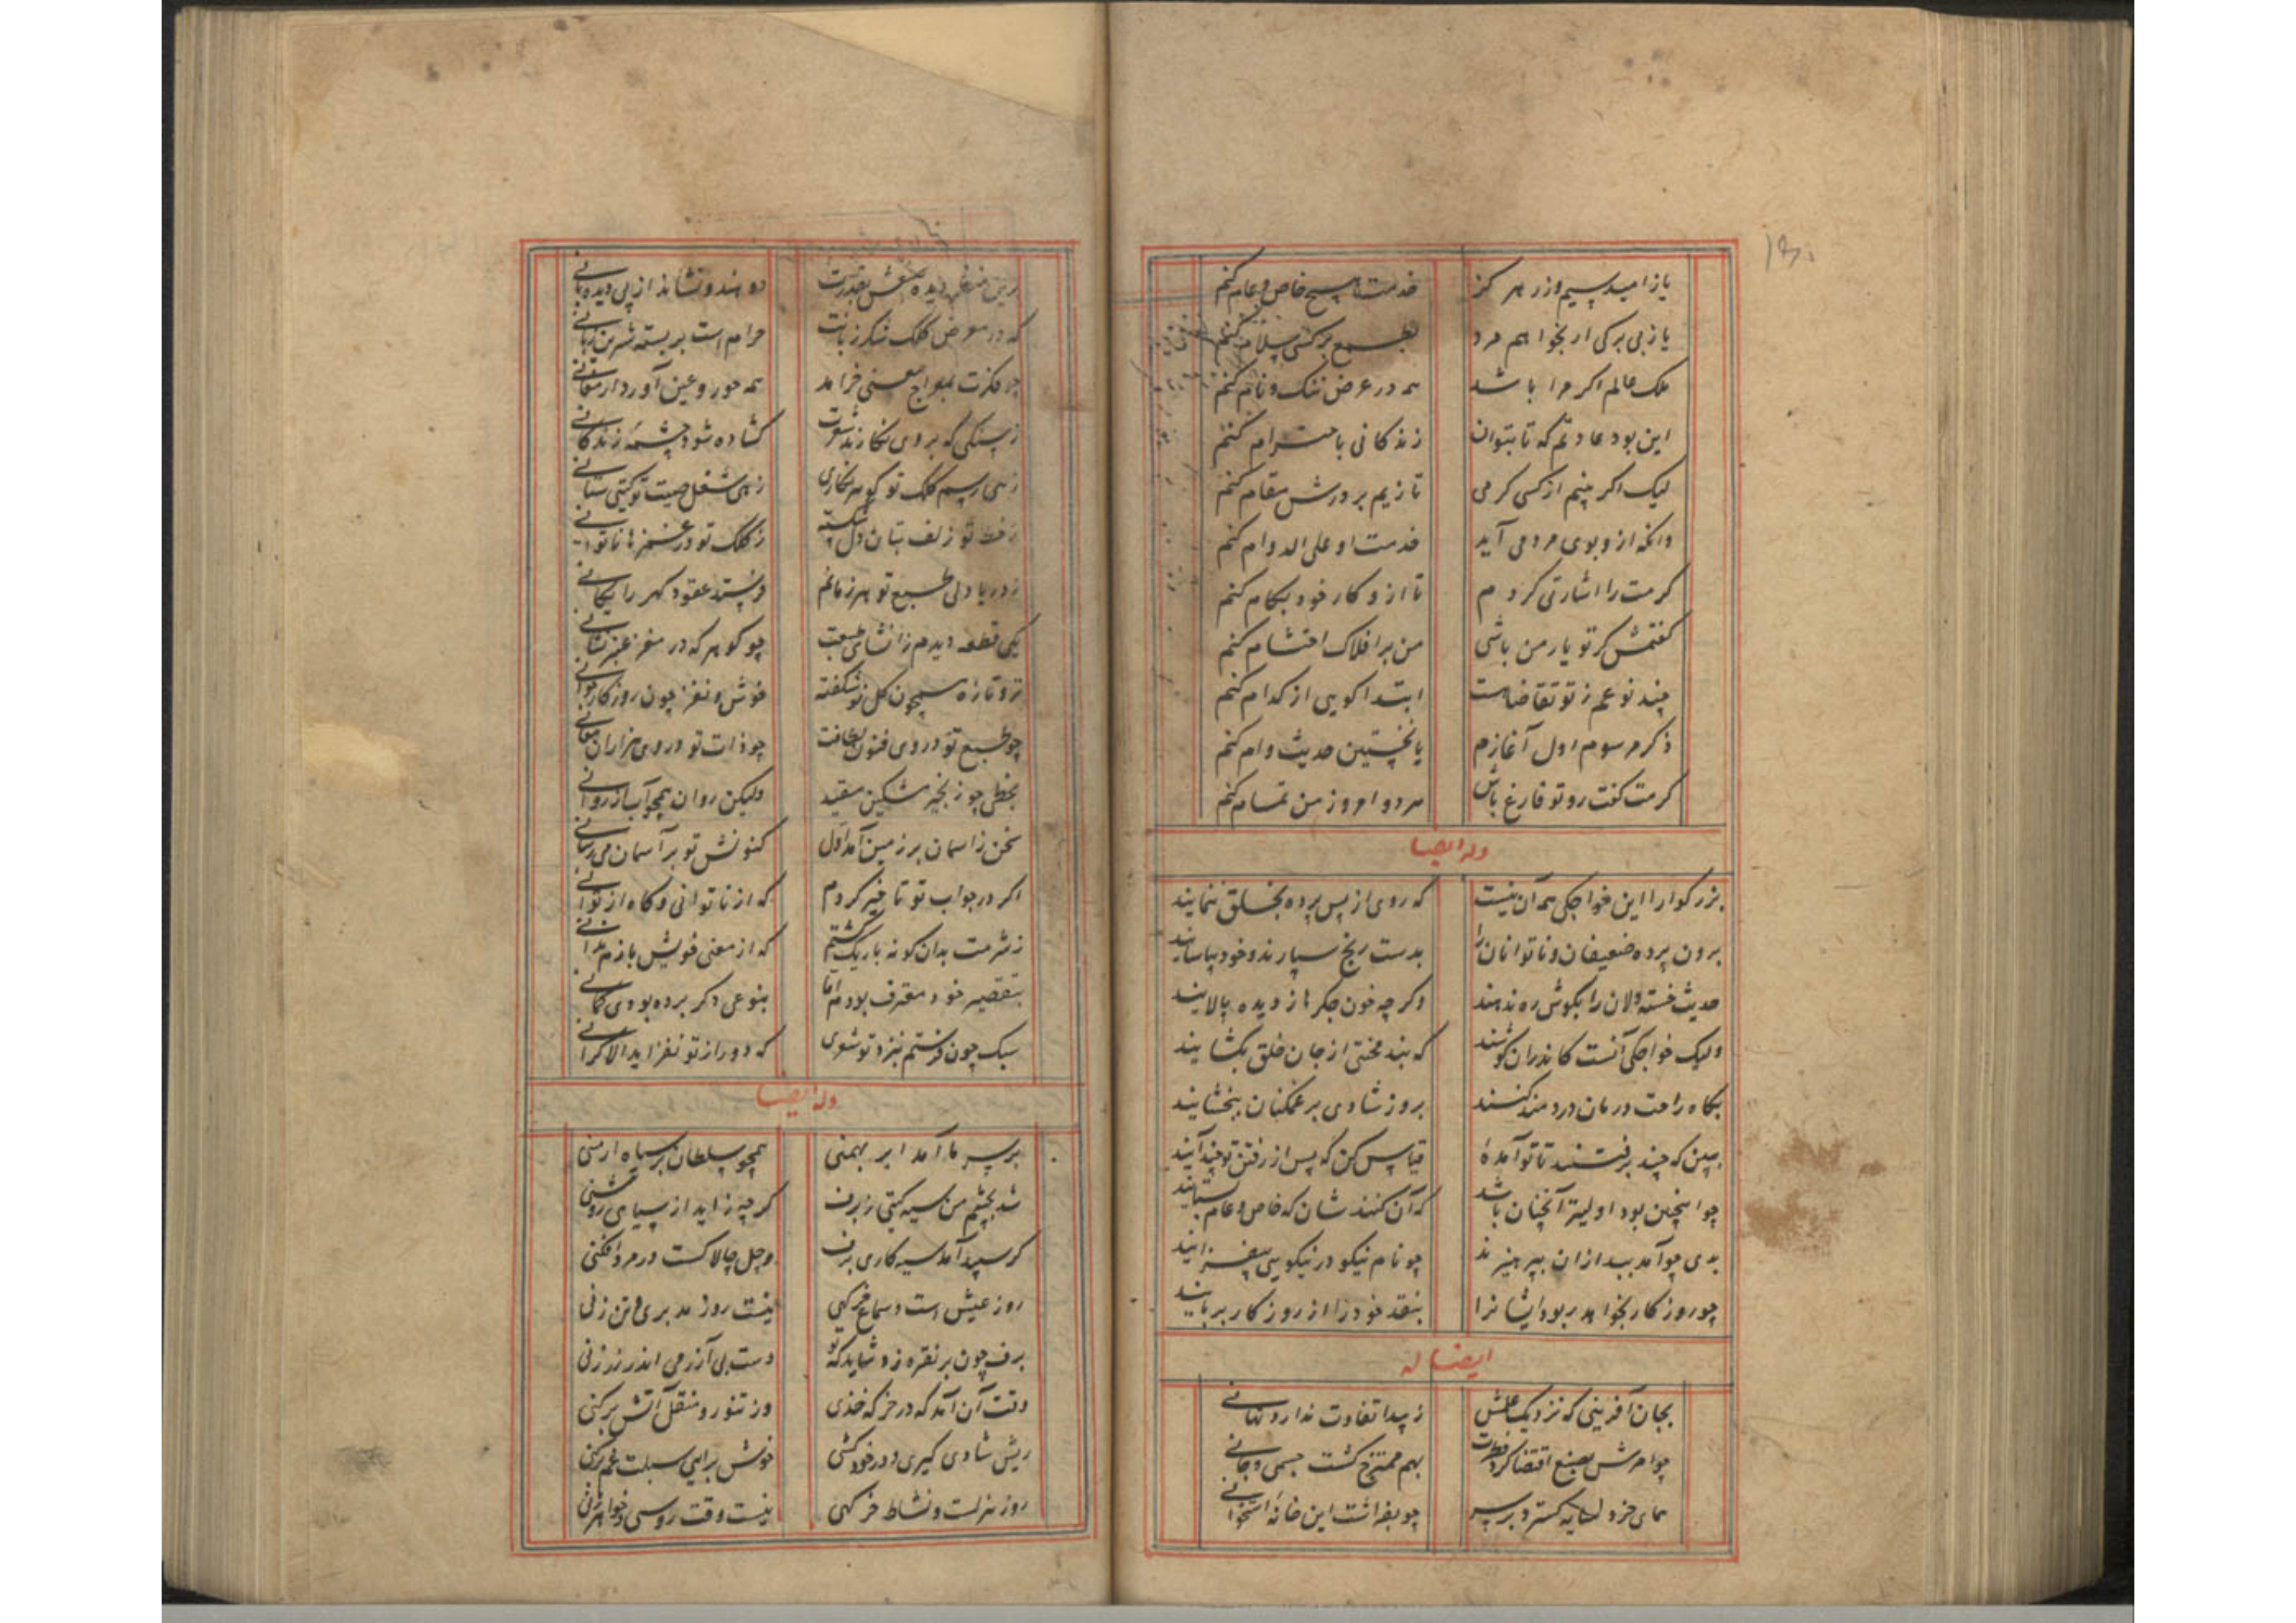 ۱۳۰
یا ز امید سیم و زر هر کز خدمت هیچ خاص و عام کنم
یا ز بی برکی ار بخواهم مرد بطمع بر کسی سلام کنم
ملک عالم اکر مرا باشد همه در عرض ننک و نام کنم
این بود عادتم که تا بتوان زندکانی باحترام کنم
لیک اکر بینم از کسی کرمی تا زیم بر درش مقام کنم
وانکه از و بوی مردمی آید خدمت او علی الدوام کنم
کرمت را اشارتی کردم تا ازو کار خود بکام کنم
کفتمش کر تو یار من باشی من بر افلاک احتشام کنم
چند نوعم ز تو تقاضاست ابتدا کویی از کدام کنم
ذکر مرسوم اول آغازم یا نخستین حدیث وام کنم
کرمت کفت رو تو فارغ باش هر دو امروز من تمام کنم
وله ایضا
بزرکوارا این خواجکی همه آن نیست که روی از پس پرده بخلق ننمایند
برون پرده ضعیفان و ناتوانان را بدست رنج سپارند و خود بیاسایند
حدیث خسته دلان را بکوش ره ندهند وکر چه خون جکرها ز دیده پالایند
ولیک خواجکی آنست کاندران کوشند که بند محنتی از جان خلق بکشایند
بکاه راحت درمان دردمند کنند بروز شادی بر غمکنان ببخشایند
ببین که چند برفتند تا تو آمدهٔ قیاس کن که پس از رفتن تو چند آیند
چو اینچنین بود اولیتر آنچنان باشد که آن کنند شان که خاص و عام بستایند
بدی چو آمد ببد از ان بپرهیزند چو نام نیکو در نیکویی بیفزایند
چو روزکار بخواهد ربود ایشانرا بنقد خود را از روزکار بربایند
ایضا له
بجان آفرینی که نزدیک علمش ز پیدا تفاوت ندارد نهانی
چو امرش بصنع اقتضا کرد فطرت بهم ممتزج کشت جسمی و جانی
همای خرد سایه کسترد بر سر چو بفراشت این خانهٔ استخوانی
دو هندو نشاند از پی دیده بانی
که در معرض کلک شکر زبانت حرام است بر بسته شیرین زبانی
چو فکرت بمعراج معنی خرامد همه حور و عین آورد ارمغانی
ز سنکی که بر وی نکارند شعرت کشاده شود چشمهٔ زندکانی
زهی رسم کلک تو کوهر نکاری زهی شغل صیت تو کیتی ستانی
ز خط تو زلف بتان دل شکسته ز کلک تو در غمزها ناتوانی
ز دریا دلی طبع تو هر زمانم فرستد عقود کهر رایکانی
یکی قطعه دیدم ز انشای طبعت چو کوهر که در مغز عنبر نشانی
تر و تازه همچون کل نو شکفته خوش و نغز چون روزکار جوانی
چو طبع تو در وی فنون لطافت چو ذات تو در وی هزاران معانی
بخطی چو زنجیر مشکین مقید ولیکن روان همچو آب از روانی
سخن ز اسمان بر زمین آمد اول کنونش تو بر آسمان می رسانی
اکر در جواب تو تاخیر کردم که از ناتوانی و کاه از توانی
ز شرمت بدان کونه باریک کشتم که از معنی خویش بازم ندانی
بتقصیر خود معترف بودم اما بنوعی دکر برده بودی کمانی
سبک چون فرستم بنزد تو شعری که دور از تو نفزاید الا کرانی
وله ایضا
بر سر ما آمد ابر بهمنی همچو سلطان بر سپاه ارمنی
شد بچشم من سیه کیتی ز برف کر چه زاید از سپیدی روشنی
کر سپید آمد سیه کاری برف وجل چالاکست در مرد افکنی
روز عیش است و سماع خرکهی نیست روز مدبری و تن زنی
برف چون بر نقره زد شاید که تو دست بی آزرمی اندر زر زنی
وقت آن آمد که در خرکه خزی وز تنور و منقل آتش بر کنی
ریش شادی کیری و در خود کشی خوش برآیی سبلت غم بر کنی
روز هزلست و نشاط خرکهی